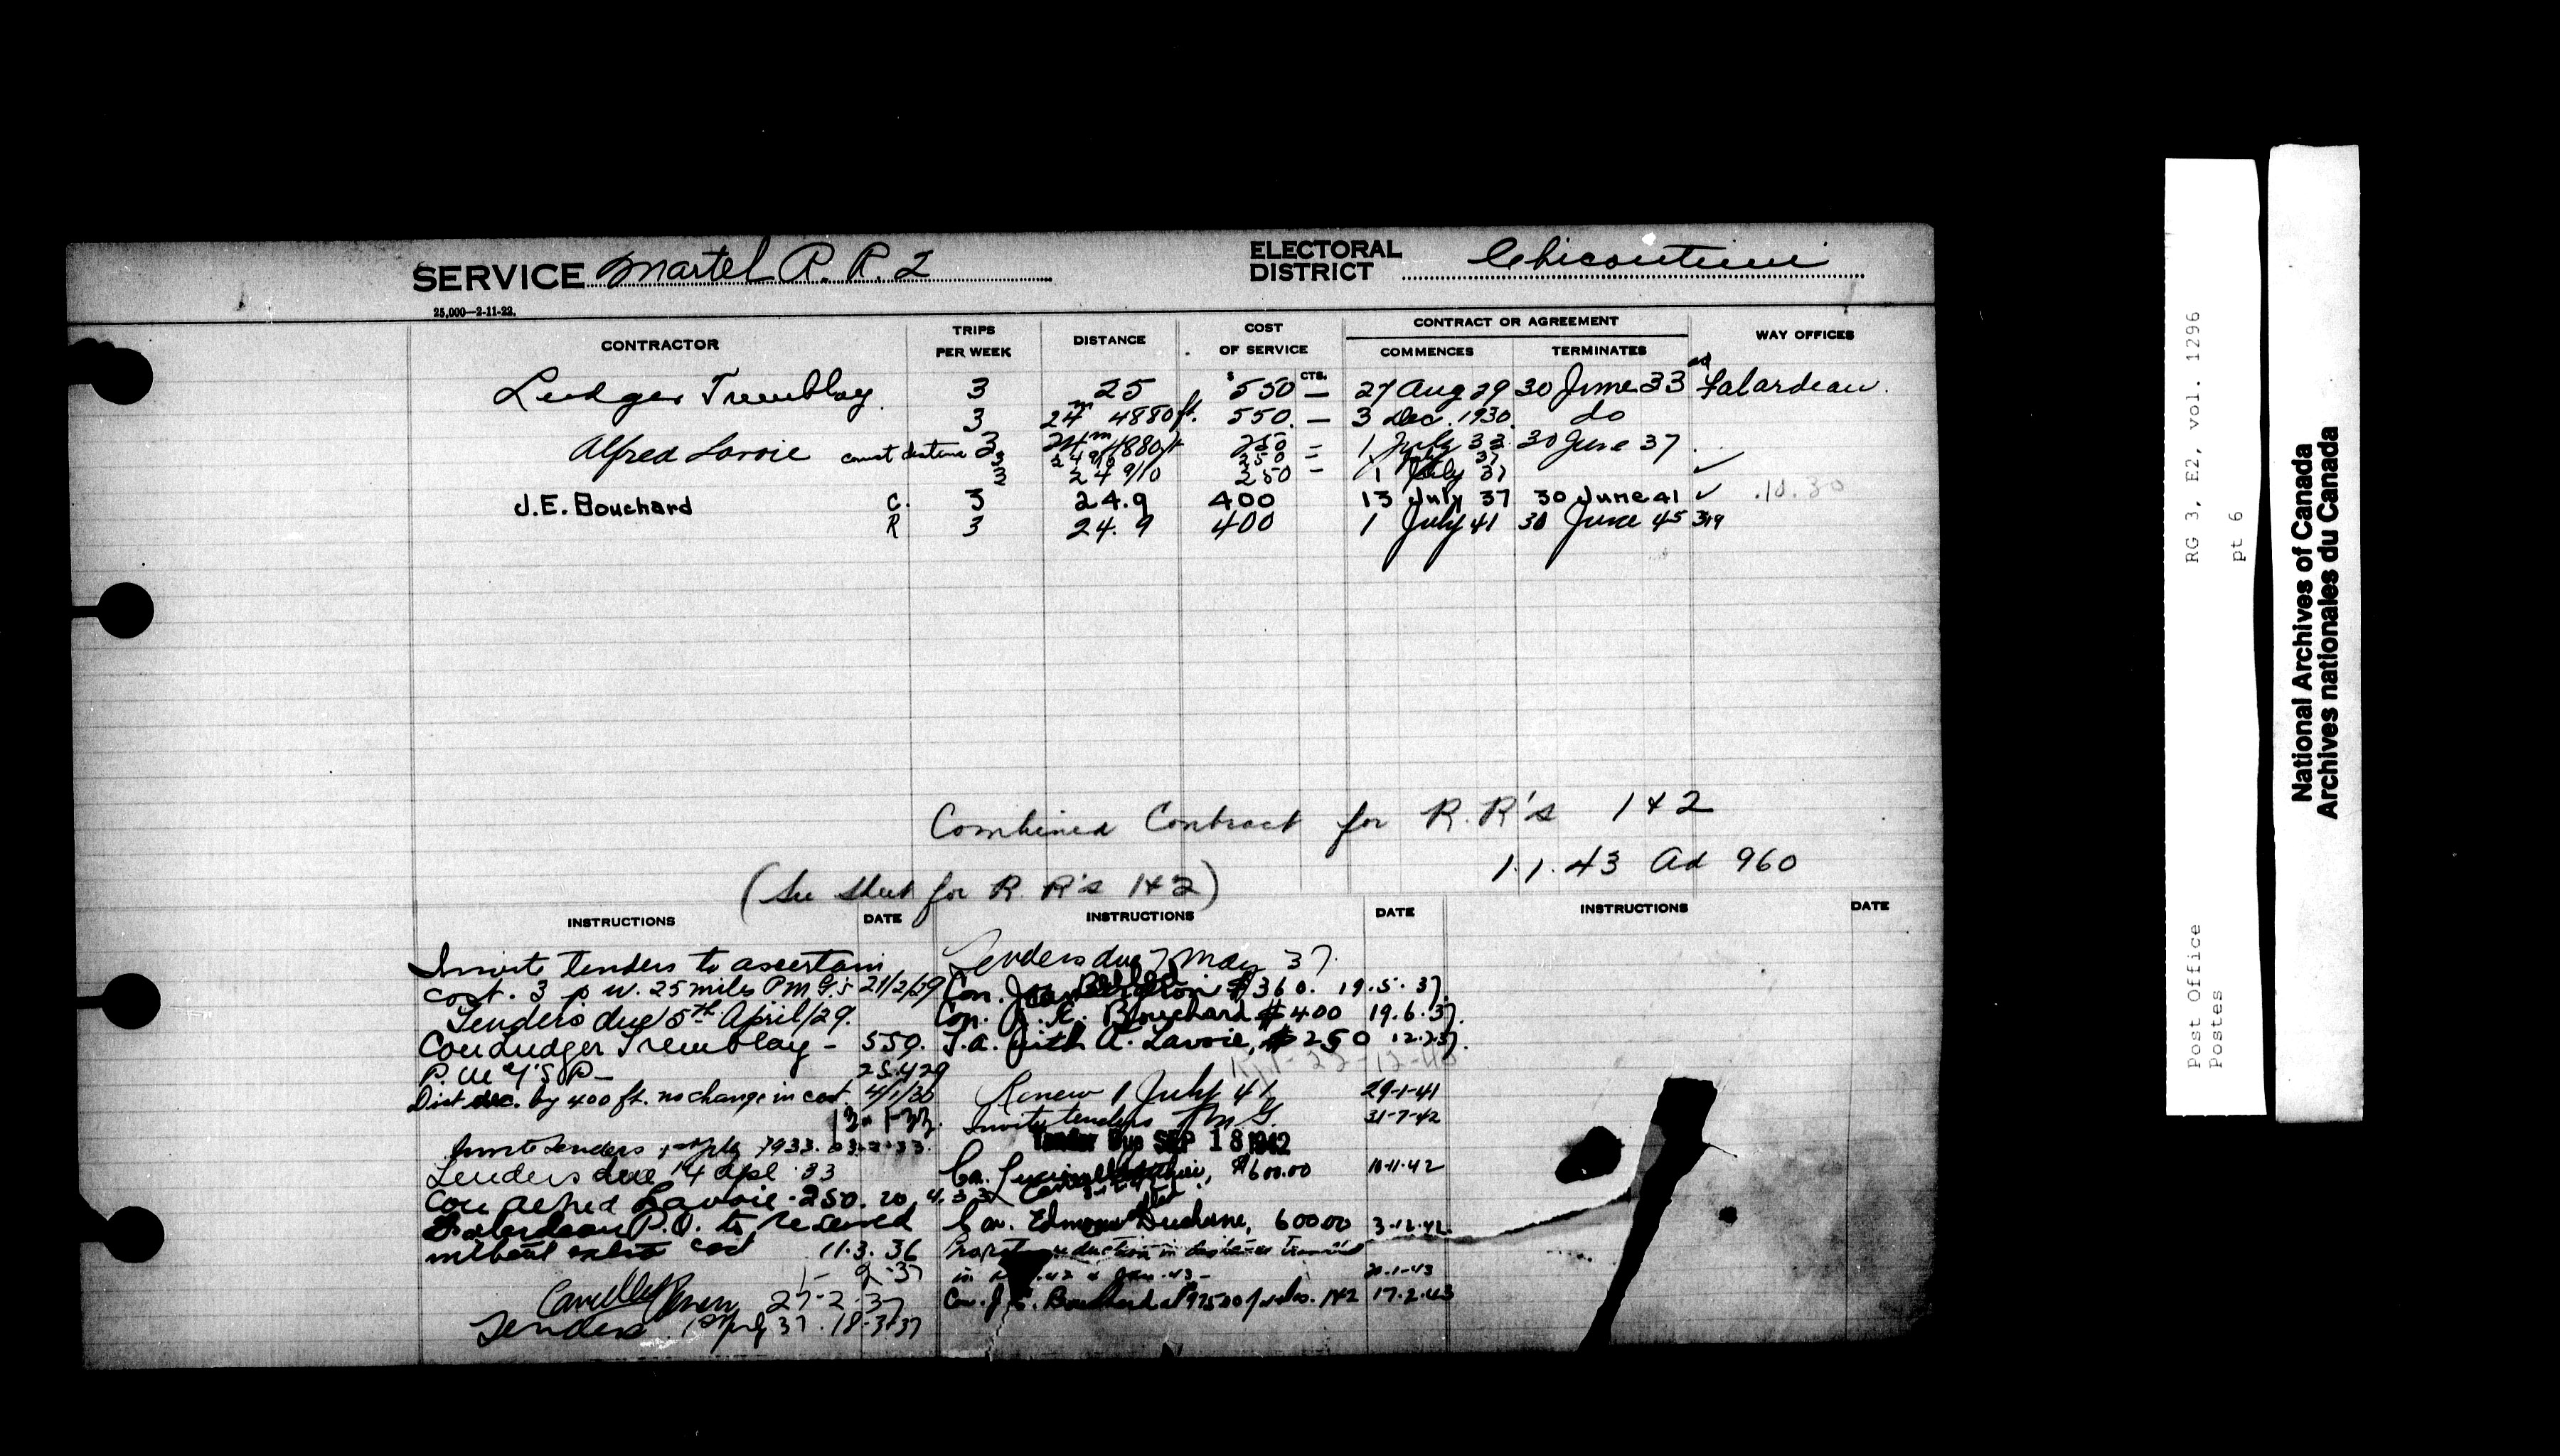 SERVICE Martel R. R. 2
ELECTORAL DISTRICT Chicoutimi
25,000—2-11-22.
CONTRACTOR TRIPS PER WEEK DISTANCE COST OF SERVICE CONTRACT OR AGREEMENT COMMENCES TERMINATES WAY OFFICES
$ CTS.
Ludger Tremblay 3 25 550 — 27 Aug 29 30 June 33 Falardeau.
3 24m 4880 ft. 550. — 3 Dec. 1930. do
Alfred Lavoie 3 24m 4880 ft 250 = 1 July 33 30 June 37
correct distance 3 24 9/10 250 –
3 24 9/10 250 – 1 July 37 ✓
J.E. Bouchard C. 3 24.9 400 13 July 37 30 June 41 ✓
R 3 24.9 400 1 July 41 30 June 45 319
Combined Contract for R.R's 1 & 2
1.1.43 Ad 960
(See sheet for R R's 1 & 2)
INSTRUCTIONS DATE
Invite tenders to ascertain
cost. 3 p. w. 25 miles P.M.G.'s 21/2/29
Tenders due 5th April/29.
Con Ludger Tremblay – 550.
25.4.29
Dist dec. by 400 ft. no change in cost. 4/1/30
Invite tenders 1933.
Tenders due 14 Apl 33
Con Alfred Lavoie - 250. 20.4.33
Falardeau P.O. to be served
without extra cost 11.3.36
27-2-37
Tenders 37. 18-3-37
INSTRUCTIONS DATE
Tenders due 7 May 37.
Con. $360. 19.5.37.
Con. J. E. Bouchard $400 19.6.37.
T.a. with A. Lavoie, $250 12.7.37.
Renew 1 July 41 29-1-41
Invite tenders P.M.G. 31-7-42
Tender Due SEP 18 1942
$600.00 10-11-42
Con. Edmond Duchesne, 600.00 3-12-42.
reduction in distance travelled
20-1-43
Con. J. E. Bouchard at $975.00 1 & 2 17.2.43
INSTRUCTIONS DATE
RG 3, E2, vol. 1296
pt 6
Post Office
Postes
National Archives of Canada
Archives nationales du Canada